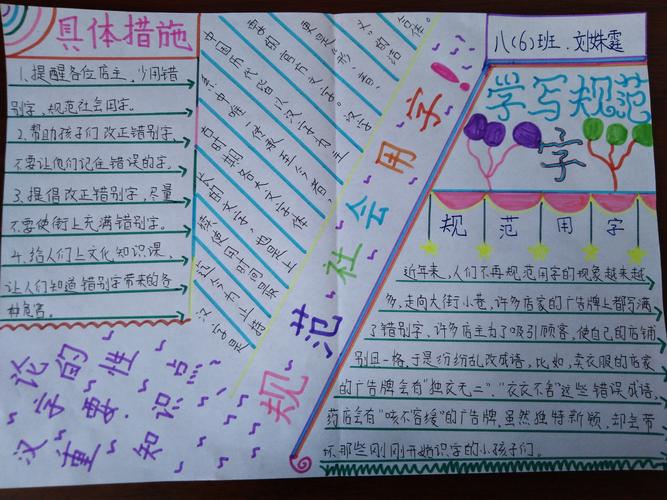 具体措施
1.提醒各位店主,少用错
别字,规范社会用字。
2.帮助孩子们改正错别字,
不要让他们记住错误的字。
3.提倡改正错别字,尽量
不要使街上充满错别字。
4.给人们上文化知识课,
让人们知道错别字带来的各
种危害。
论汉字的重要性
知识点
汉字是
迄今为止持
续使用时间最
长的文字,也是上
古时期各大文字体
系中唯一传承至今者,
中国历代皆以汉字为主
要的官方文字。汉字
更是形、音、
义的结
合体。
规范社会用字!
八(6)班.刘姝霆
学写规范
字
规范用字
近年来,人们不再规范用字的现象越来越
多,走向大街小巷,许多店家的广告牌上都写满
了错别字、许多店主为了吸引顾客,使自己的店铺
别具一格,于是纷纷乱改成语,比如,卖衣服的店家
的广告牌会有"独衣无二"、"衣衣不舍"这些错误成语,
药店会有"咳不容缓"的广告牌.虽然独特新颖,却会带
坏那些刚刚开始识字的小孩子们。